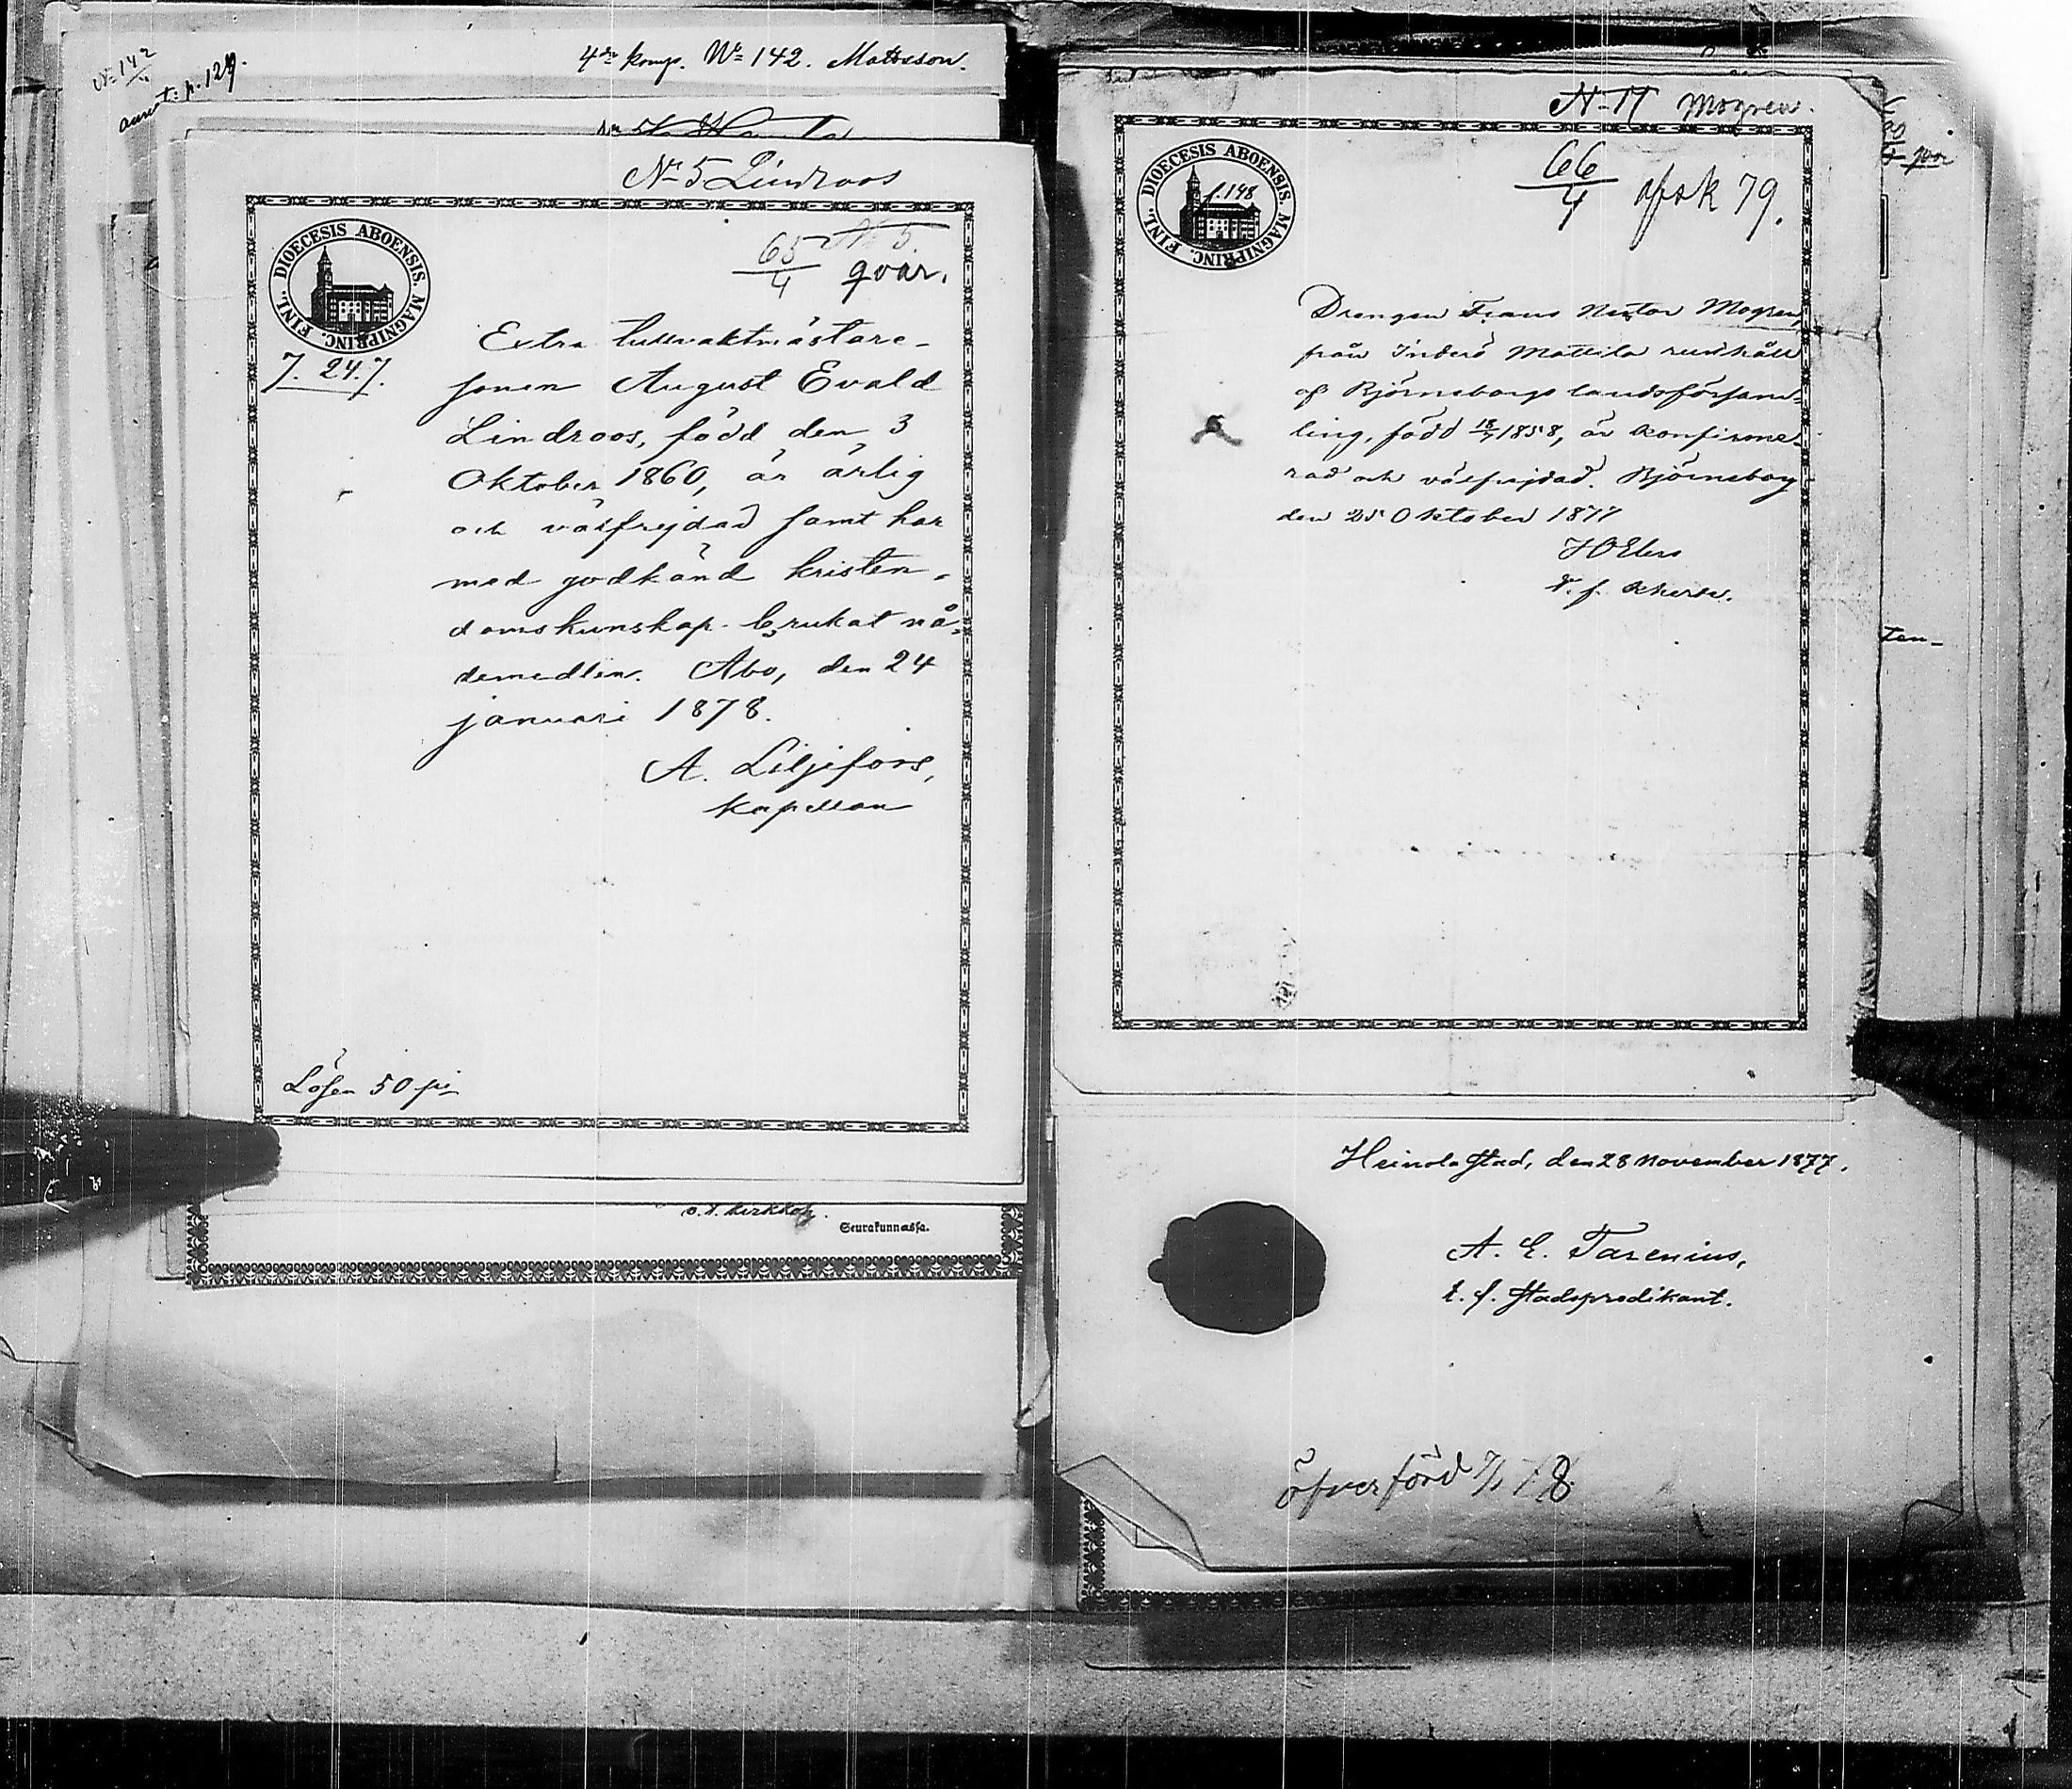 No 142
4
annot: p. 127.
4de komp. No 142. Mattsson.
No 5 Lindroos
DIOECESIS ABOENSIS. MAGNIPRINC. FINL.
65
4
No 5.
qvar.
J. 24.7.
Extra tullvaktmästare-
sonen August Evald
Lindroos, född den 3
Oktober 1860, är ärlig
och välfrejdad samt har
med godkänd kristen-
domskunskap brukat nå-
demedlen. Åbo, den 24
januari 1878.
A. Liljefors,
Kapellan
Lösen 50 pi
Seurakunnassa.
No 11 Mogren.
DIOECESIS ABOENSIS. MAGNIPRINC. FINL.
f. 148
66
4
afsk 79.
Drengen Frans Nestor Mogren,
från Inderö Mattila rusthåll
af Björneborgs landsförsam-
ling, född 18/7 1858, är konfirme-
rad och välfrejdad. Björneborg
den 25 Oktober 1877
v. f.
qvar
ten-
Heinola stad, den 28 November 1877.
A. E. Tarenius,
t. f. stadspredikant.
öfverförd 78